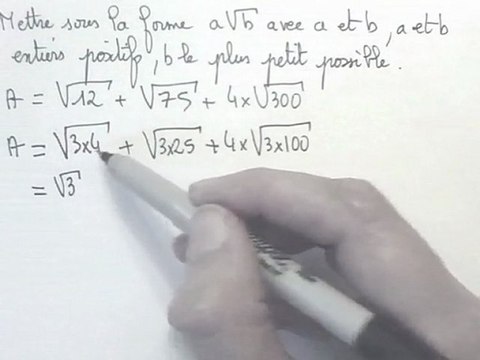 Mettre sous la forme a√b avec a et b, a et b
entiers positifs, b le plus petit possible.
A = √12 + √75 + 4×√300
A = √3×4 + √3×25 + 4×√3×100
= √3